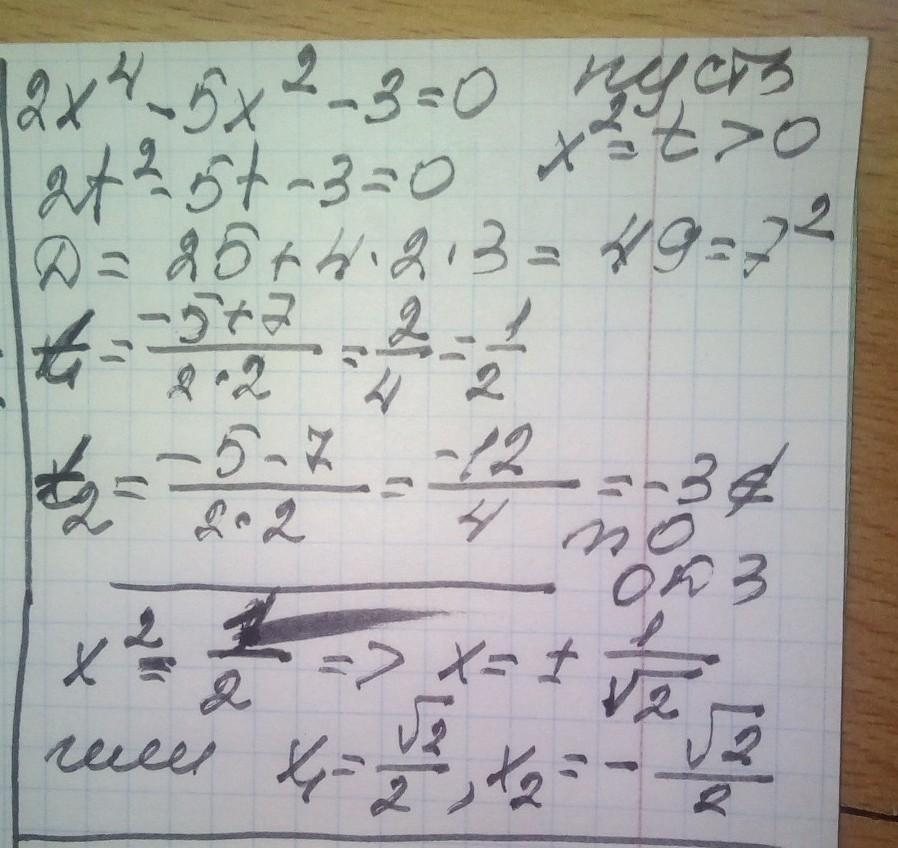 2x⁴ - 5x² - 3 = 0 пусть
x² = t > 0
2t² - 5t - 3 = 0
D = 25 + 4·2·3 = 49 = 7²
t₁ = (-5+7)/(2·2) = 2/4 = 1/2
t₂ = (-5-7)/(2·2) = -12/4 = -3 ∉
по
ОДЗ
x² = 1/2 => x = ± 1/√2
или x₁ = √2/2, x₂ = - √2/2